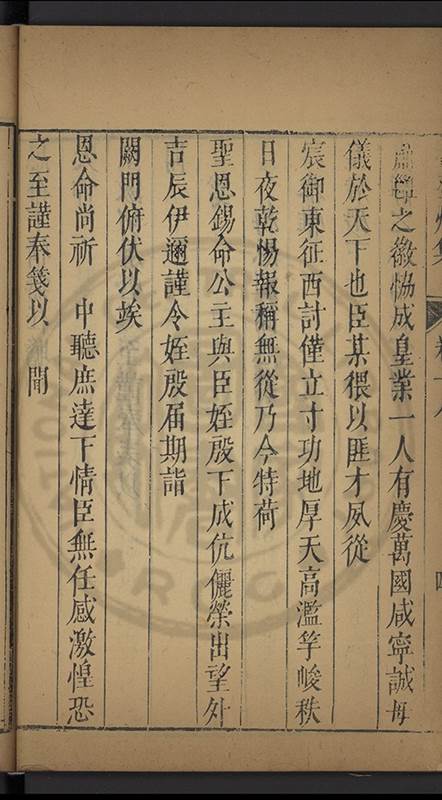 之徽恊成皇業一人有慶萬國咸寧誠毋
儀於天下也臣某猥以匪才夙從
宸御東征西討僅立寸功地厚天高濫竽峻秩
日夜乾惕報稱無從乃今特荷
聖恩錫命公主與臣姪殷下成伉儷榮出望外
吉辰伊邇謹令姪殷届期詣
闕門俯伏以竢
恩命尚祈 中聽庶達下情臣無任感激惶恐
之至謹奉箋以 聞